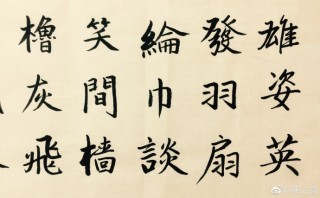 雄姿英
發羽扇
綸巾談
笑間檣
櫓灰飛